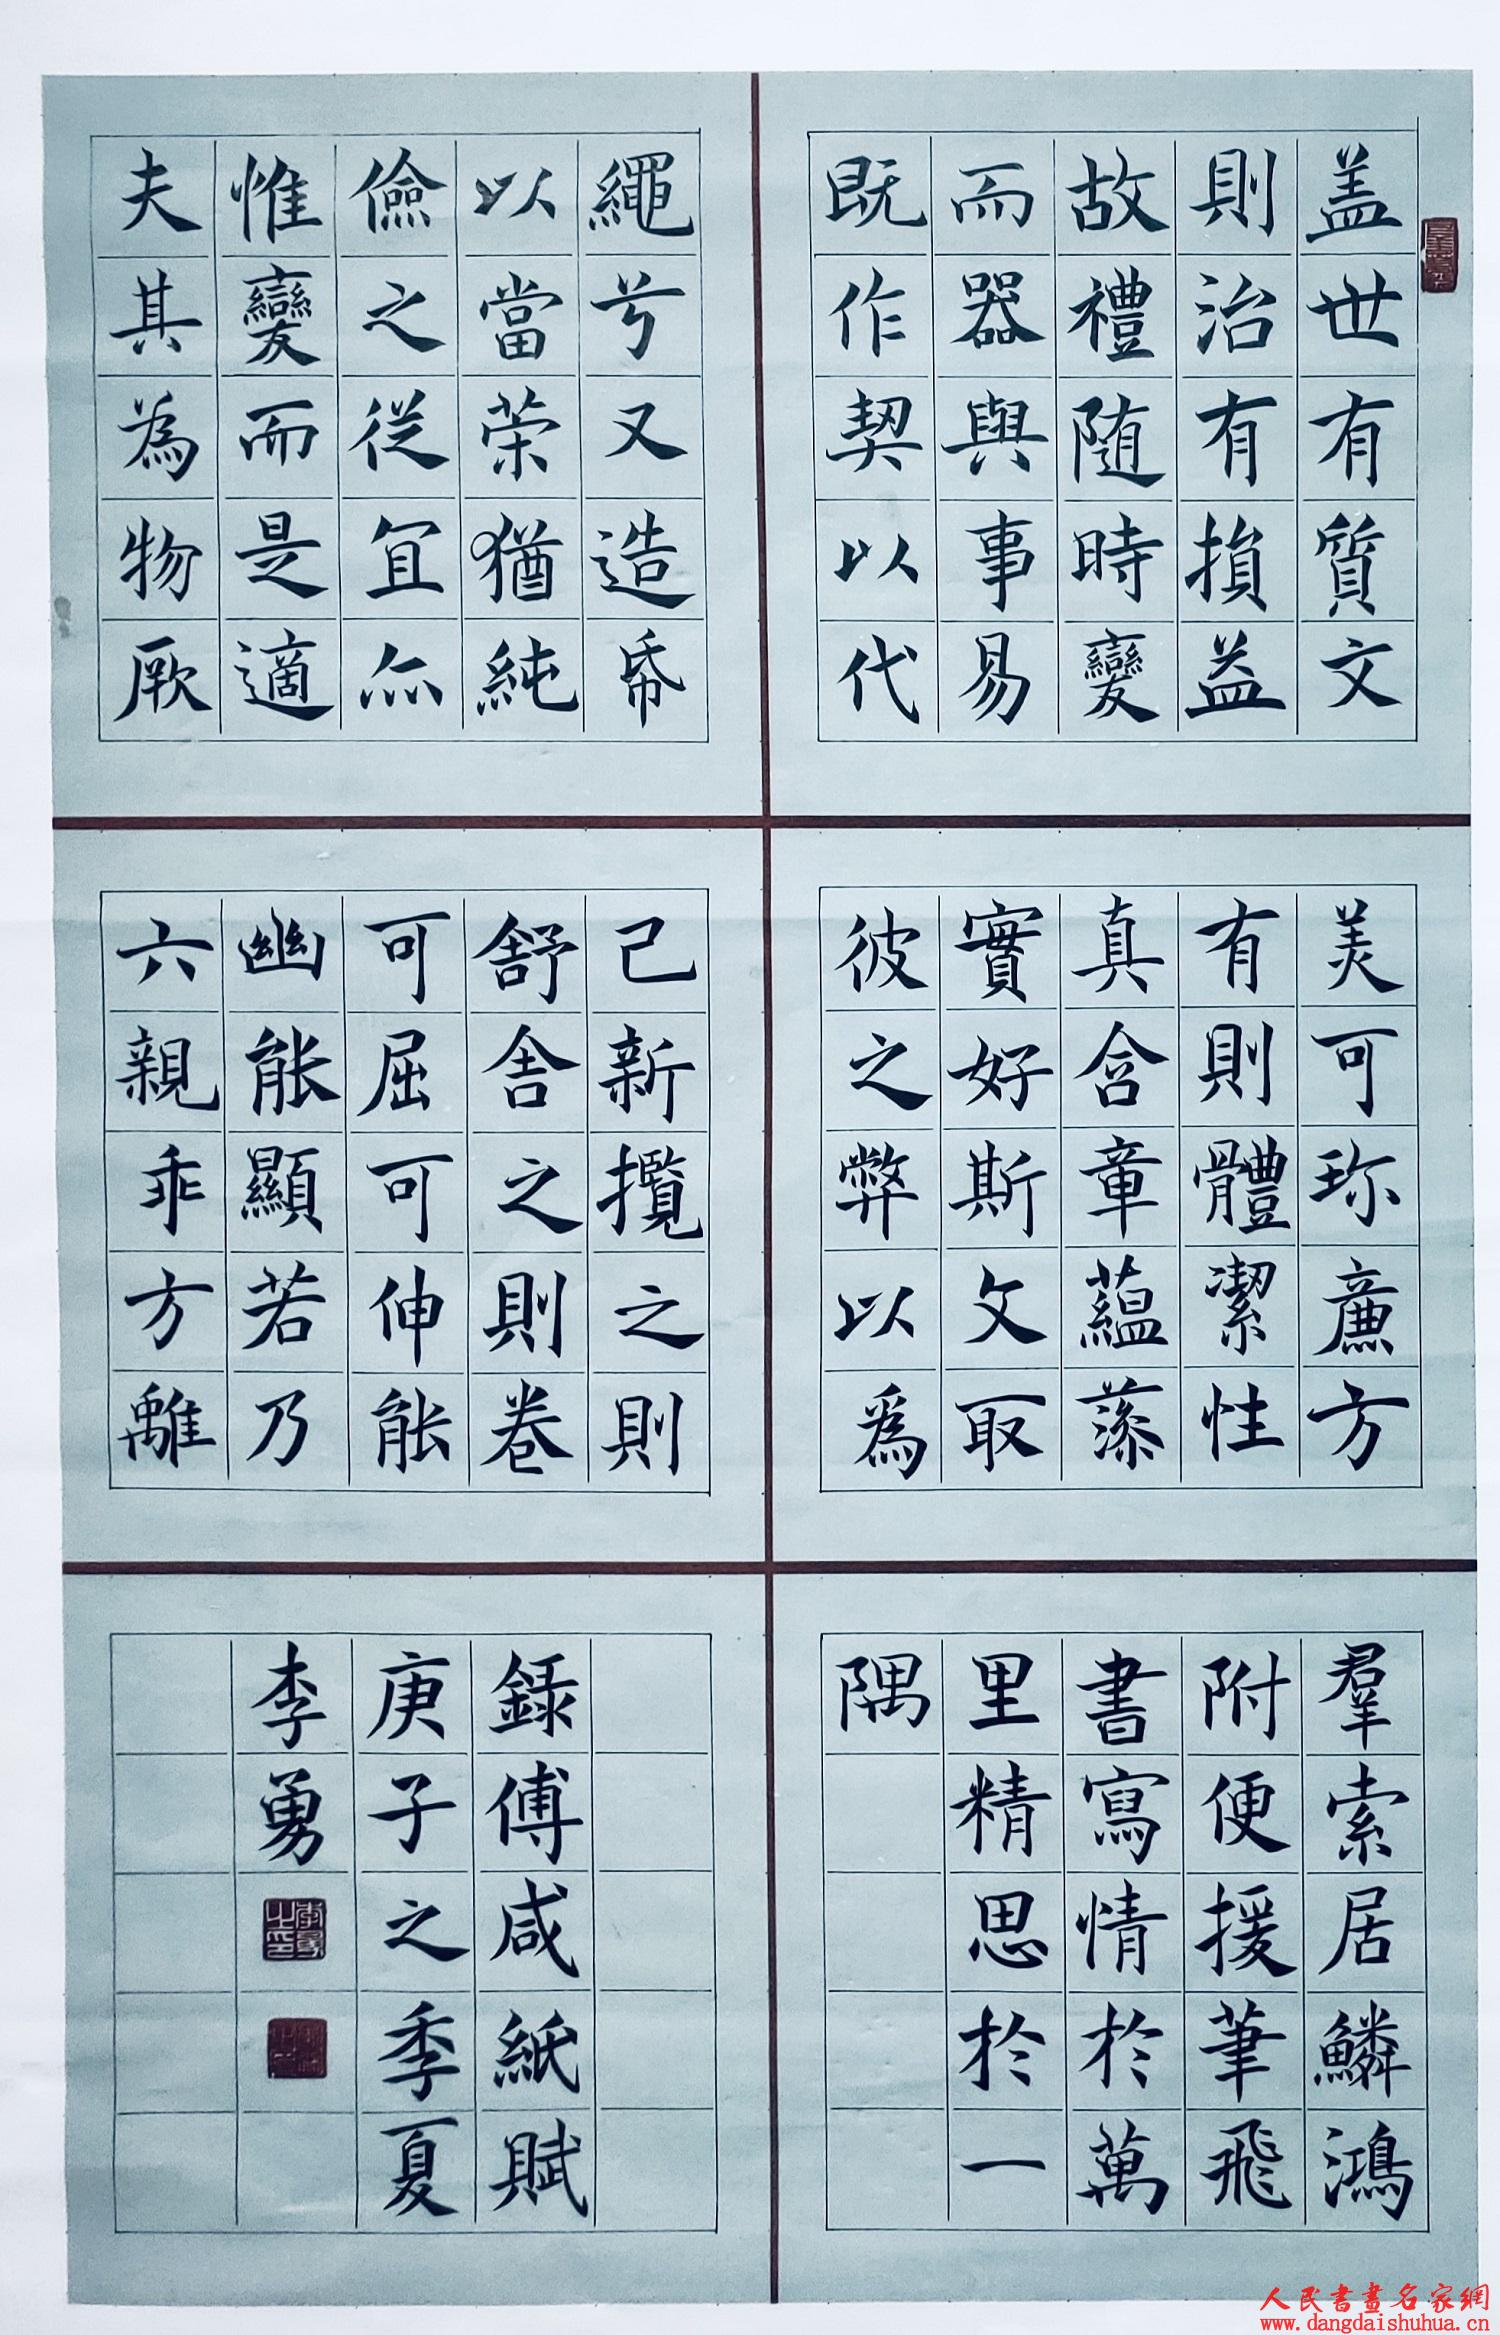 盖世有質文
則治有損益
故禮随時變
而器與事易
既作契以代
繩兮又造帋
以當荣猶純
儉之從宜亦
惟變而是適
夫其為物厥
美可珎廉方
有則體潔性
真含章蘊藻
實好斯文取
彼之弊以為
己新攬之則
舒舍之則卷
可屈可伸能
幽能顯若乃
六親乖方離
羣索居鱗鴻
附便援筆飛
書寫情於萬
里精思於一
隅
錄傅咸紙賦
庚子之季夏
李勇
李勇之印
人民書畫名家網
www.dangdaishuhua.cn